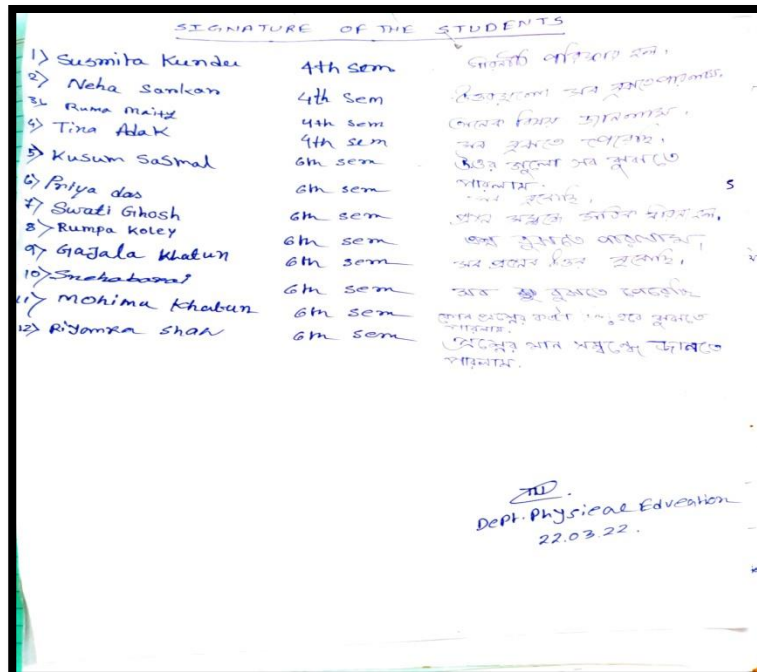 SIGNATURE OF THE STUDENTS
1) Susmita Kundu 4th sem পরিষ্কার হল।
2) Neha Sankar 4th sem উত্তরগুলো সব বুঝতে পারলাম।
3) Ruma Maity 4th sem অনেক বিষয় জানলাম।
4) Tina Adak 4th sem সব বুঝতে পেরেছি।
5) Kusum Sasmal 6th sem উত্তর গুলো সব বুঝতে
পারলাম।
6) Priya das 6th sem সব বুঝেছি।
7) Swati Ghosh 6th sem প্রশ্ন সম্বন্ধে সঠিক ধারনা হল,
8) Rumpa Koley 6th sem বুঝতে পারলাম,
9) Gajala Khatun 6th sem সব প্রশ্নের উত্তর বুঝেছি,
10) 6th sem সব বুঝতে পেরেছি
11) Mohima Khatun 6th sem কোন প্রশ্নের হবে বুঝতে
পারলাম.
12) Riyanka Shah 6th sem প্রশ্নের মান সম্বন্ধে জানতে
পারলাম.
S
Dept. Physical Education
22.03.22.